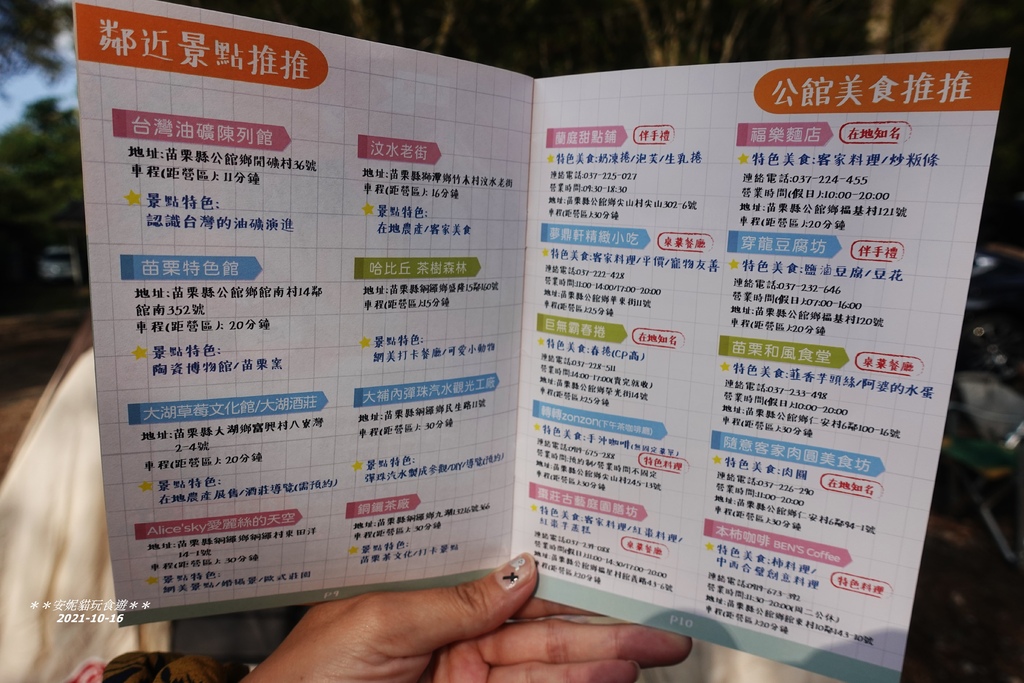 鄰近景點推推
台灣油礦陳列館
地址:苗栗縣公館鄉開礦村36號
車程(距營區):11分鐘
景點特色:
認識台灣的油礦演進
苗栗特色館
地址:苗栗縣公館鄉館南村14鄰
館南352號
車程(距營區):20分鐘
景點特色:
陶瓷博物館/苗栗窯
大湖草莓文化館/大湖酒莊
地址:苗栗縣大湖鄉富興村八寮灣
2-4號
車程(距營區):20分鐘
景點特色:
在地農產展售/酒莊導覽(需預約)
Alice'sky愛麗絲的天空
地址:苗栗縣銅鑼鄉銅鑼村東田洋
14-1號
車程(距營區):30分鐘
景點特色:
網美景點/婚攝景/歐式莊園
汶水老街
地址:苗栗縣獅潭鄉竹木村汶水老街
車程(距營區):16分鐘
景點特色:
在地農產/客家美食
哈比丘 茶樹森林
地址:苗栗縣銅鑼鄉盛隆15鄰160號
車程(距營區):15分鐘
景點特色:
網美打卡餐廳/可愛小動物
大補內彈珠汽水觀光工廠
地址:苗栗縣銅鑼鄉民生路11號
車程(距營區):30分鐘
景點特色:
彈珠汽水製成參觀/DIY/導覽(預約)
銅鑼茶廠
車程(距營區):30分鐘
景點特色:
苗栗茶文化/打卡景點
P9
公館美食推推
蘭庭甜點鋪 伴手禮
特色美食:奶凍捲/泡芙/生乳捲
連絡電話:037-225-027
營業時間:09:30-18:30
地址:苗栗縣公館鄉尖山村尖山302-6號
車程(距營區):30分鐘
夢鼎軒精緻小吃 桌菜餐廳
特色美食:客家料理/平價/寵物友善
連絡電話:037-222-428
營業時間:11:00-14:00/17:00-20:00
地址:苗栗縣公館鄉華東街11號
車程(距營區):25分鐘
巨無霸春捲 在地知名
特色美食:春捲(CP高)
連絡電話:037-228-511
營業時間:14:00-17:00(賣完就收)
地址:苗栗縣公館鄉榮光街14號
車程(距營區):25分鐘
轉轉zonzon(下午茶咖啡廳)
特色美食:手沖咖啡(無固定菜單)
連絡電話:0989-675-288 特色料理
營業時間:預約制/營業時間不固定
地址:苗栗縣公館鄉尖山村245-13號
車程(距營區):30分鐘
棗莊古藝庭園膳坊
特色美食:客家料理/紅棗料理/
紅棗芋蒸糕
桌菜餐廳
車程(距營區):20分鐘
福樂麵店 在地知名
特色美食:客家料理/炒粄條
連絡電話:037-224-455
營業時間(假日):10:00-20:00
地址:苗栗縣公館鄉福基村121號
車程(距營區):20分鐘
穿龍豆腐坊 伴手禮
特色美食:鹽滷豆腐/豆花
連絡電話:037-232-646
營業時間(假日):07:00-16:00
地址:苗栗縣公館鄉福基村120號
車程(距營區):20分鐘
苗栗和風食堂 桌菜餐廳
特色美食:韮香芋頭絲/阿婆的水蛋
連絡電話:037-233-498
營業時間(假日):10:00-20:00
地址:苗栗縣公館鄉仁安村6鄰100-16號
車程(距營區):30分鐘
隨意客家肉圓美食坊
特色美食:肉圓
連絡電話:037-226-290 在地知名
營業時間:11:00-20:00
地址:苗栗縣公館鄉仁安村6鄰94-1號
車程(距營區):30分鐘
本柿咖啡 BEN'S Coffee
特色美食:柿料理/
中西合璧創意料理 特色料理
營業時間:11:30-20:00(周二公休)
地址:苗栗縣公館鄉館東村10鄰143-10號
車程(距營區):20分鐘
P10
**安妮貓玩食遊**
2021-10-16